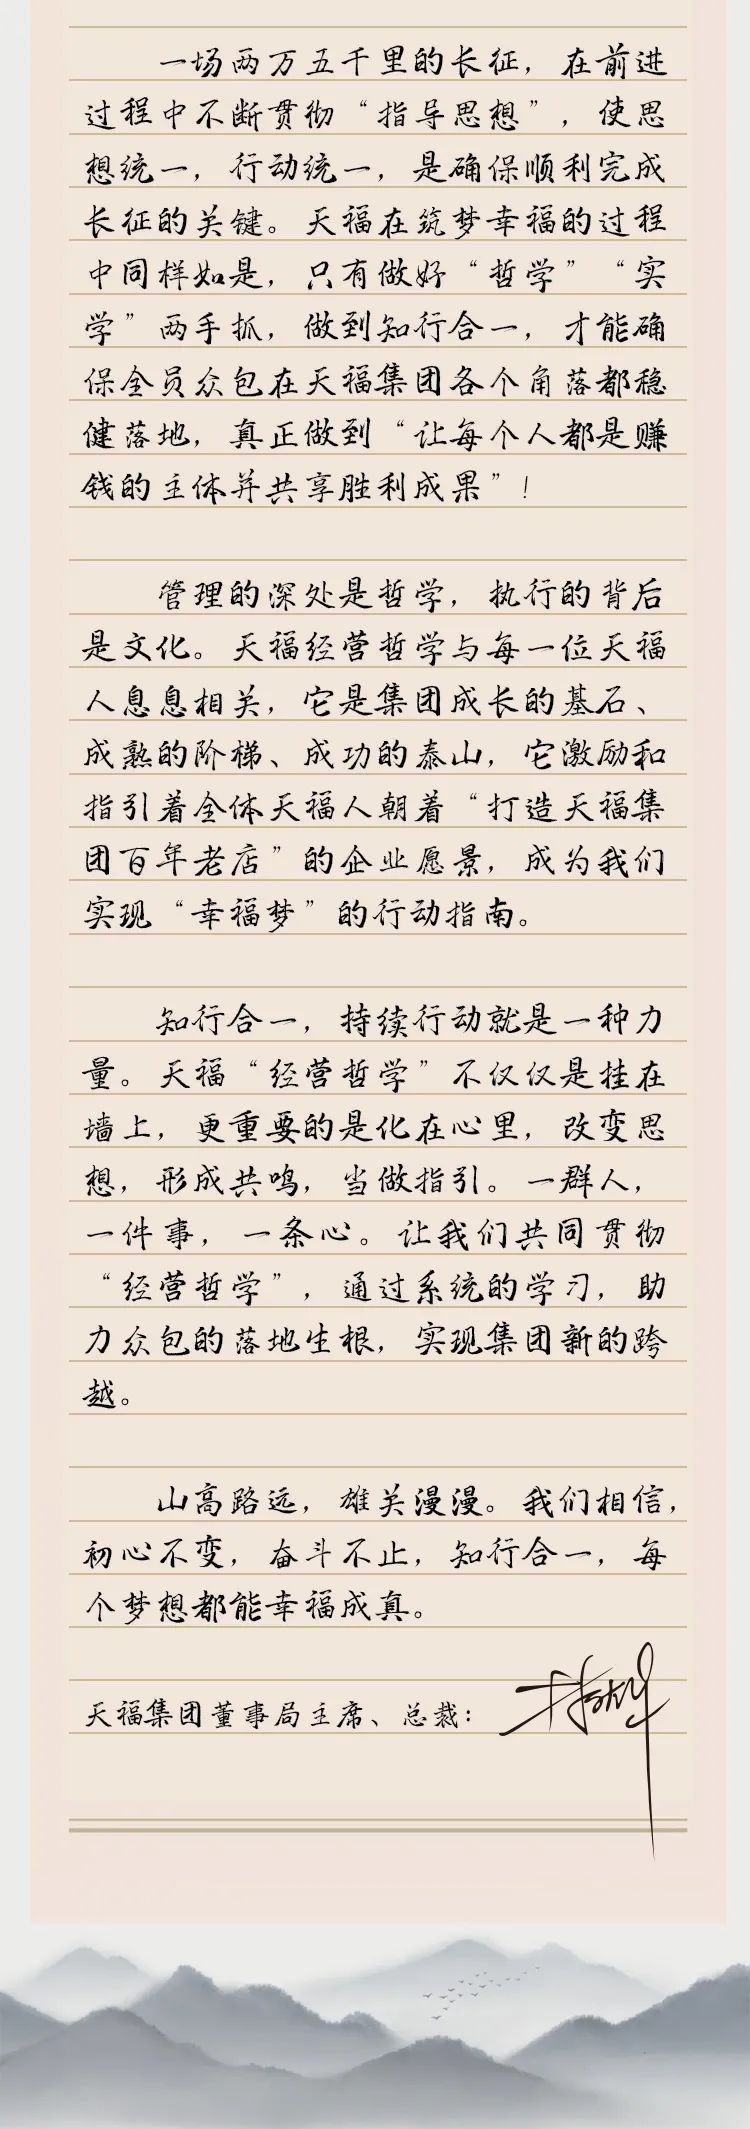 一场两万五千里的长征，在前进
过程中不断贯彻“指导思想”，使思
想统一，行动统一，是确保顺利完成
长征的关键。天福在筑梦幸福的过程
中同样如是，只有做好“哲学”“实
学”两手抓，做到知行合一，才能确
保全员众包在天福集团各个角落都稳
健落地，真正做到“让每个人都是赚
钱的主体并共享胜利成果”！
管理的深处是哲学，执行的背后
是文化。天福经营哲学与每一位天福
人息息相关，它是集团成长的基石、
成熟的阶梯、成功的泰山，它激励和
指引着全体天福人朝着“打造天福集
团百年老店”的企业愿景，成为我们
实现“幸福梦”的行动指南。
知行合一，持续行动就是一种力
量。天福“经营哲学”不仅仅是挂在
墙上，更重要的是化在心里，改变思
想，形成共鸣，当做指引。一群人，
一件事，一条心。让我们共同贯彻
“经营哲学”，通过系统的学习，助
力众包的落地生根，实现集团新的跨
越。
山高路远，雄关漫漫。我们相信，
初心不变，奋斗不止，知行合一，每
个梦想都能幸福成真。
天福集团董事局主席、总裁：